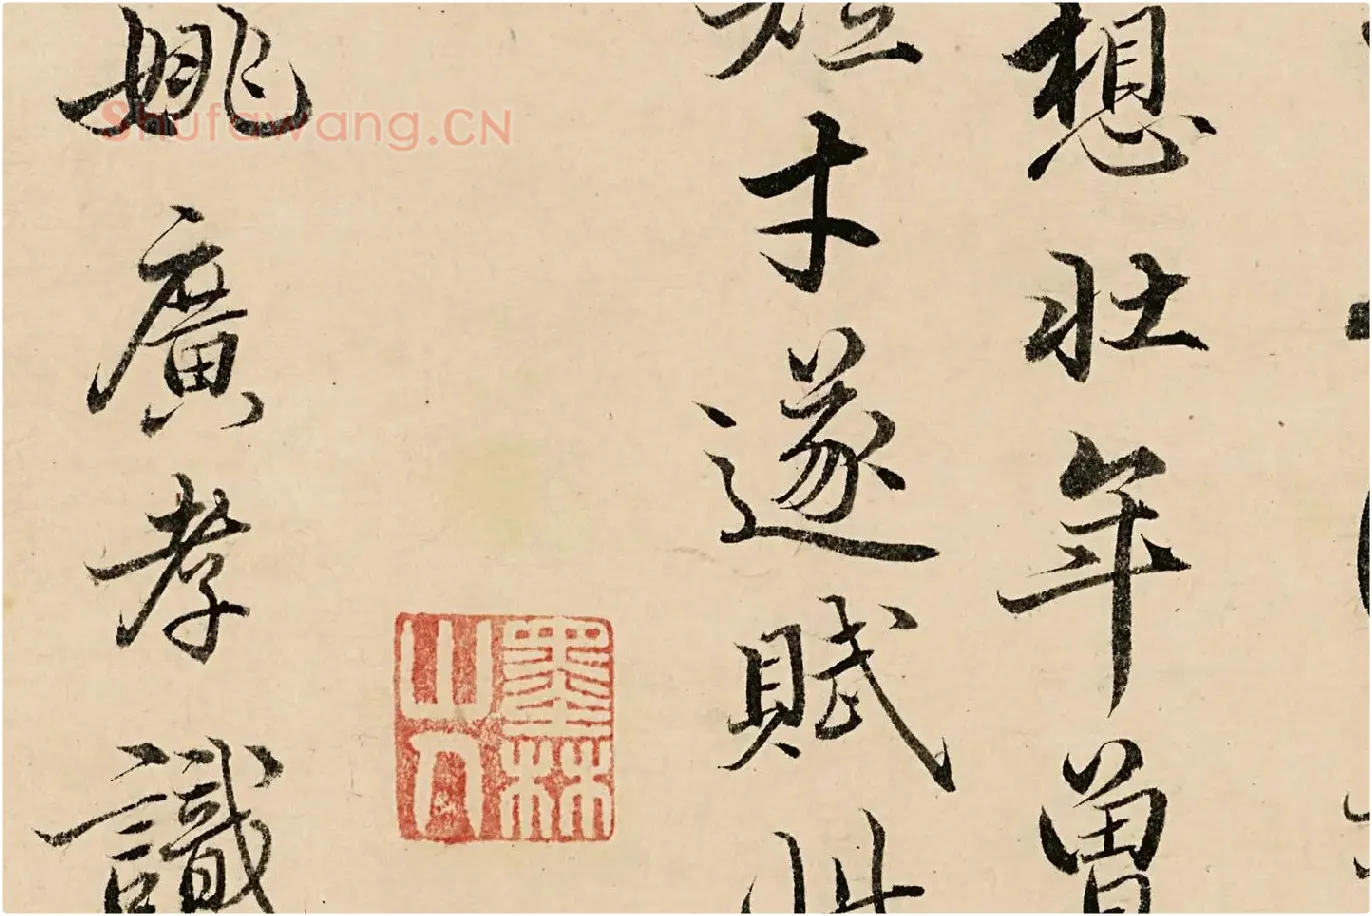 想壯年曾
短才遂賦此
姚廣孝識
墨林山人
Shufawang.CN